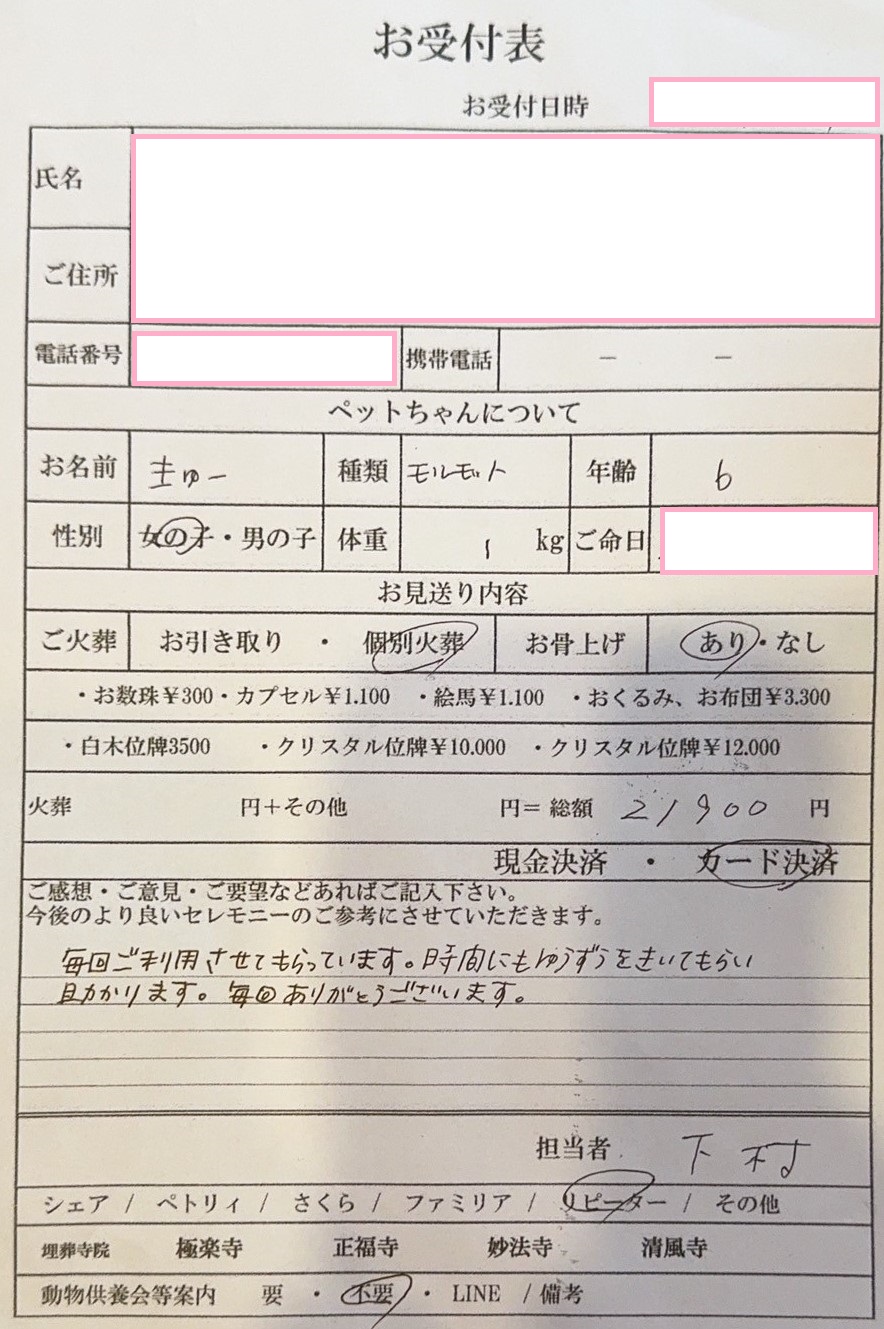 お受付表
お受付日時
氏名
ご住所
電話番号 携帯電話 － －
ペットちゃんについて
お名前 きゅー 種類 モルモット 年齢 6
性別 女の子・男の子 体重 1 kg ご命日
お見送り内容
ご火葬 お引き取り ・ 個別火葬 お骨上げ あり・なし
・お数珠¥300・カプセル¥1.100 ・絵馬¥1.100 ・おくるみ、お布団¥3.300
・白木位牌3500 ・クリスタル位牌¥10.000 ・クリスタル位牌¥12.000
火葬 円＋その他 円＝ 総額 21900 円
現金決済 ・ カード決済
ご感想・ご意見・ご要望などあればご記入下さい。
今後のより良いセレモニーのご参考にさせていただきます。
毎回ご利用させてもらっています。時間にもゆうずうをきいてもらい
助かります。毎回ありがとうございます。
担当者 下村
シェア / ペトリィ / さくら / ファミリア / リピーター / その他
埋葬寺院 極楽寺 正福寺 妙法寺 清風寺
動物供養会等案内 要 ・ 不要 ・ LINE / 備考